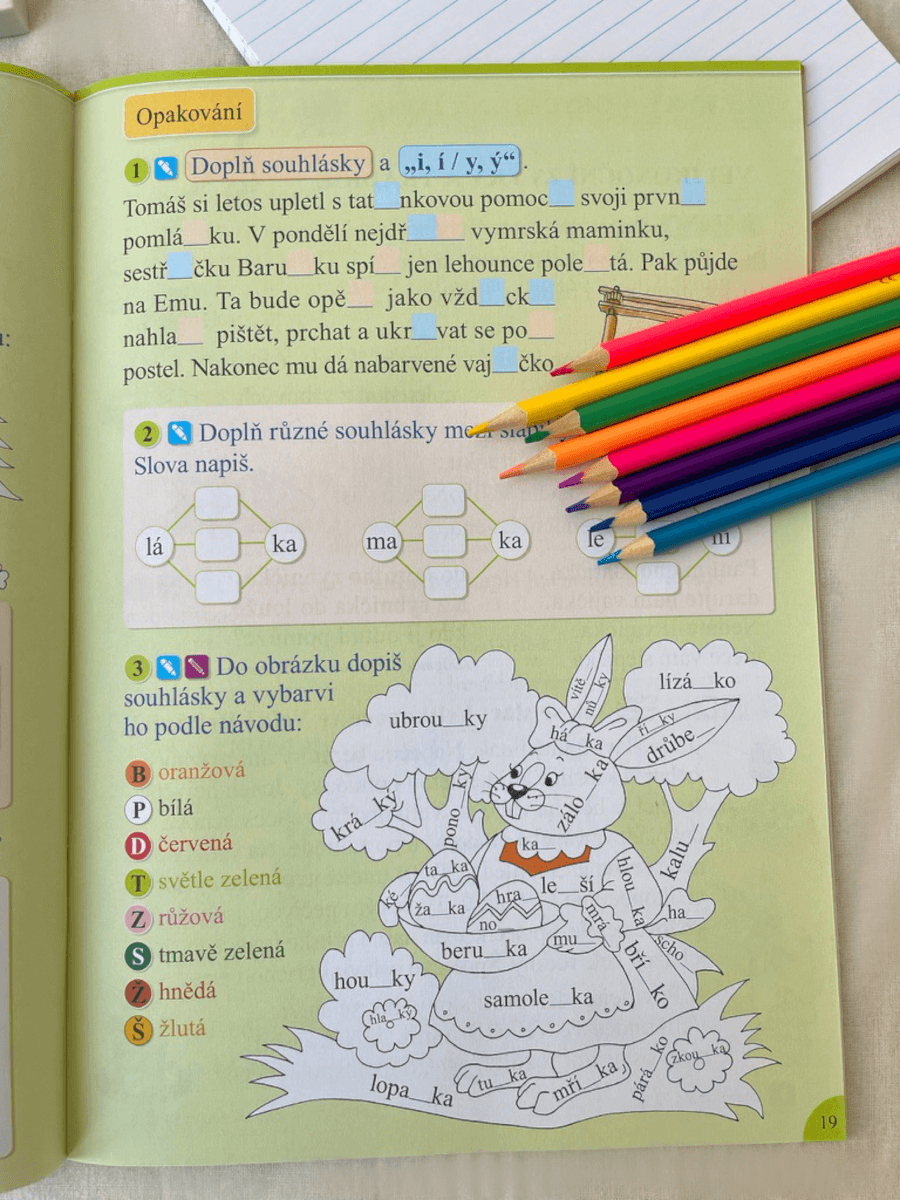 Opakování
1 Doplň souhlásky a „i, í / y, ý“.
Tomáš si letos upletl s tat__nkovou pomoc__ svoji prvn__
pomlá__ku. V pondělí nejdř__ __ vymrská maminku,
sestř__čku Baru__ku spí__ jen lehounce pole__tá. Pak půjde
na Emu. Ta bude opě__ jako vžd__ck__
nahla__ pištět, prchat a ukr__vat se po__
postel. Nakonec mu dá nabarvené vaj__čko
2 Doplň různé souhlásky mezi
Slova napiš.
lá ka ma ka le ni
3 Do obrázku dopiš
souhlásky a vybarvi
ho podle návodu:
B oranžová
P bílá
D červená
T světle zelená
Z růžová
S tmavě zelená
Ž hnědá
Š žlutá
vítě__
nů__ky
lízá__ko
ubrou__ky
há__ka
ří__ky
drůbe__
krá__ký
pono__ky
zálo__ka
ka__
ta__ka
hlou__ka
kalu__
ke__
ža__ka
hra__
le__ší
no__
mrá__
ha__
beru__ka
mu__
bří__ko
scho__
hou__ky
samole__ka
hla__ký
lopa__ka
tu__ka
mří__ka
párá__ko
zkou__ka
19